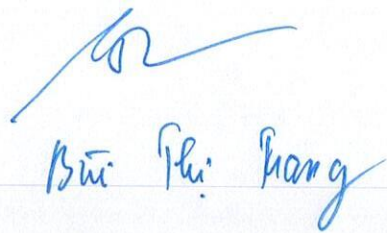 Bùi Thị Trang